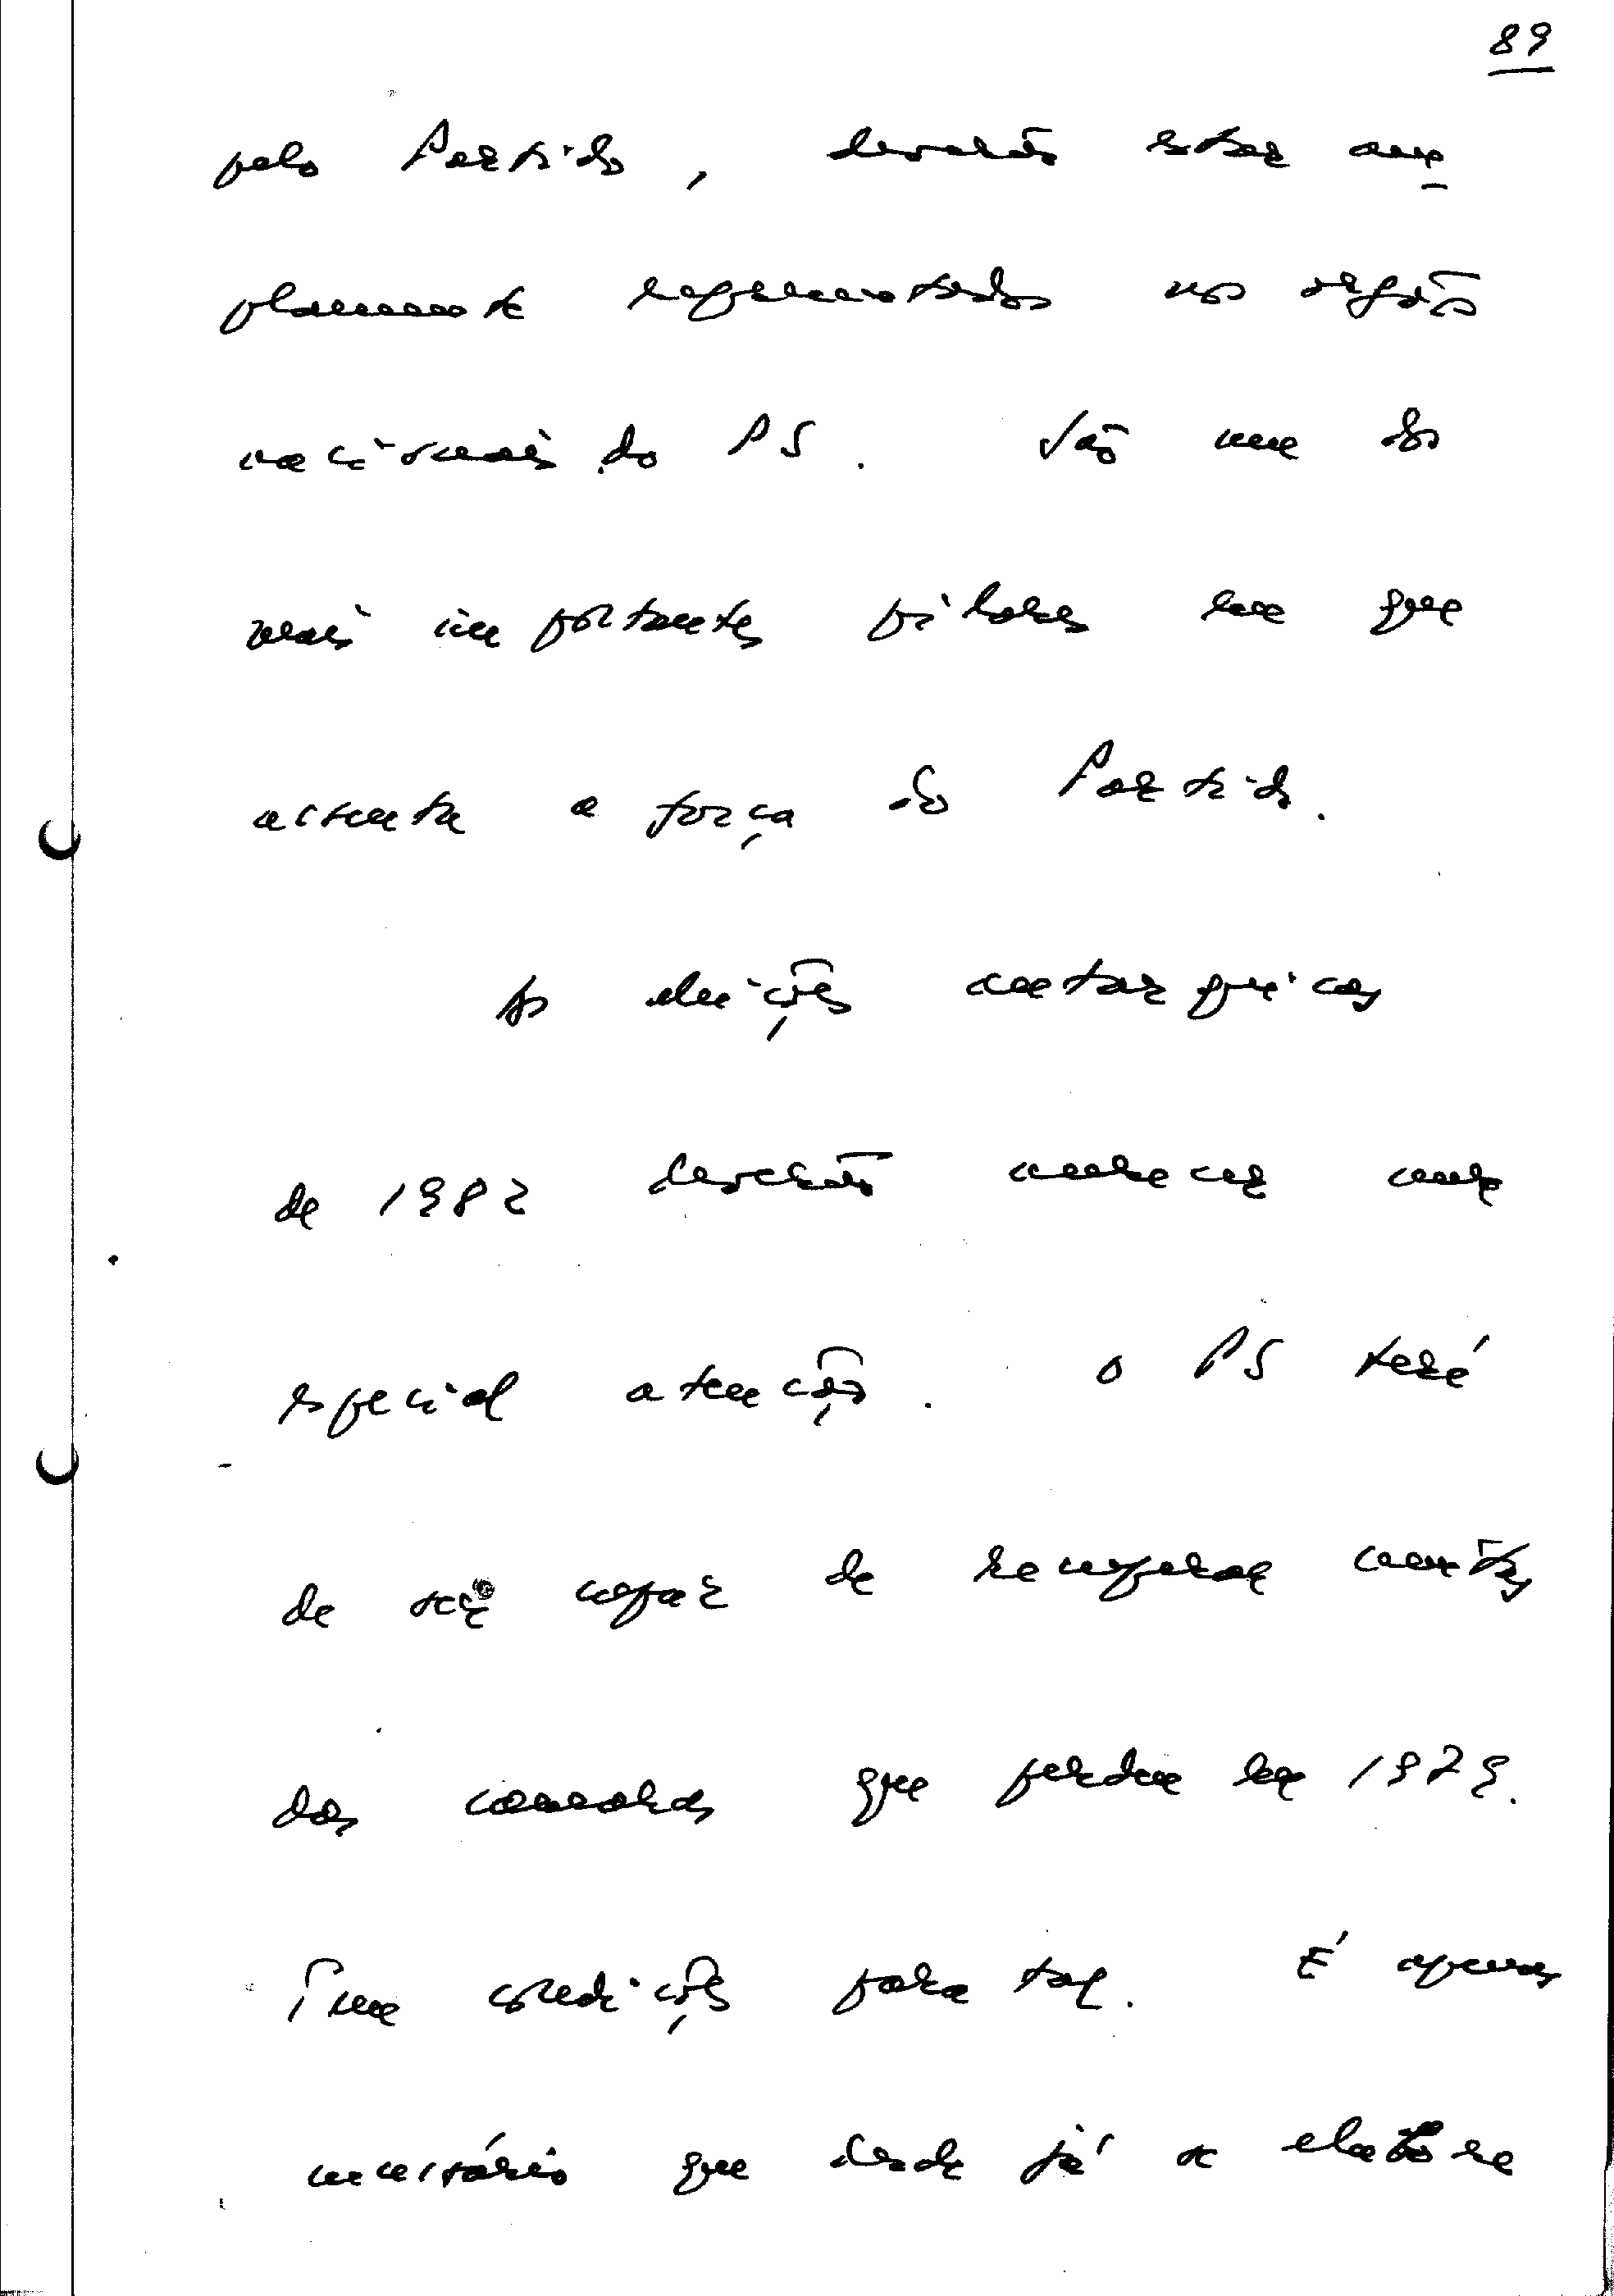 89
pelo Partido, deverão estar am-
plamente representados nos orgãos
nacionais do PS. São um dos
mais importantes pilares em que
assenta a força do Partido.
As eleições autarquicas
de 1982 deverão merecer uma
especial atenção. O PS terá
de ser capaz de recuperar muitas
das camaras que perdeu em 1979.
Tem condições para tal. É apenas
necessário que desde já se elabore